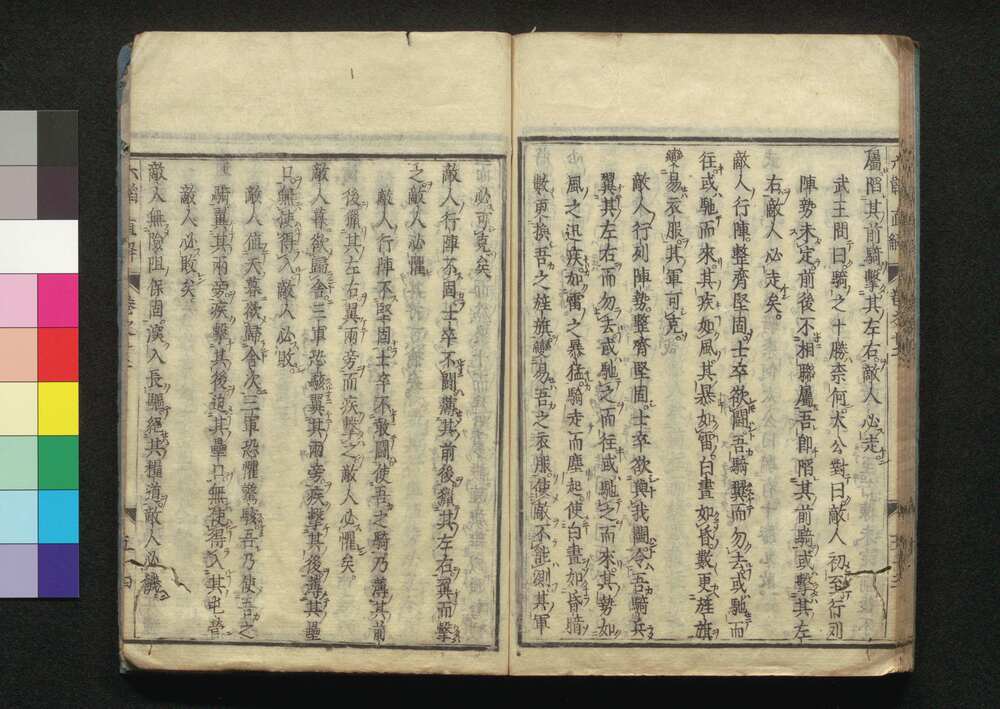 屬陷其前騎擊其左右敵人必走
武王問曰騎之十勝柰何太公對曰敵人初至行列
陣勢未定前後不相聯屬吾即陷其前騎或擊其左
右敵人必走矣
敵人行陣整齊堅固士卒欲鬪吾騎翼而勿去或馳而
往或馳而來其疾如風其暴如雷白晝如昏數更旌旗
變易衣服其軍可克
敵人行列陣勢整齊堅固士卒欲與我鬪令吾騎兵
翼其左右而勿去或馳之而往或馳之而來其勢如
風之迅疾如雷之暴猛騎走而塵起使白晝如昏暗
數更換吾之旌旗變易吾之衣服使敵不能測其軍
而必可克矣
敵人行陣不固士卒不鬪薄其前後獵其左右翼而擊
之敵人必懼
敵人行陣不堅固士卒不敢鬪使吾之騎乃薄其前
後獵其左右翼兩旁而疾擊之敵人必懼矣
敵人暮欲歸舍三軍恐駭翼其兩旁疾擊其後薄其壘
口無使得入敵人必敗
敵人值天暮欲歸舍次三軍恐懼驚駭吾乃使吾之
騎翼其兩旁疾擊其後迫其壘口無使得入其屯營
敵人必敗矣
敵人無險阻保固深入長驅絕其糧道敵人必饑
六韜直解
卷之
五十四